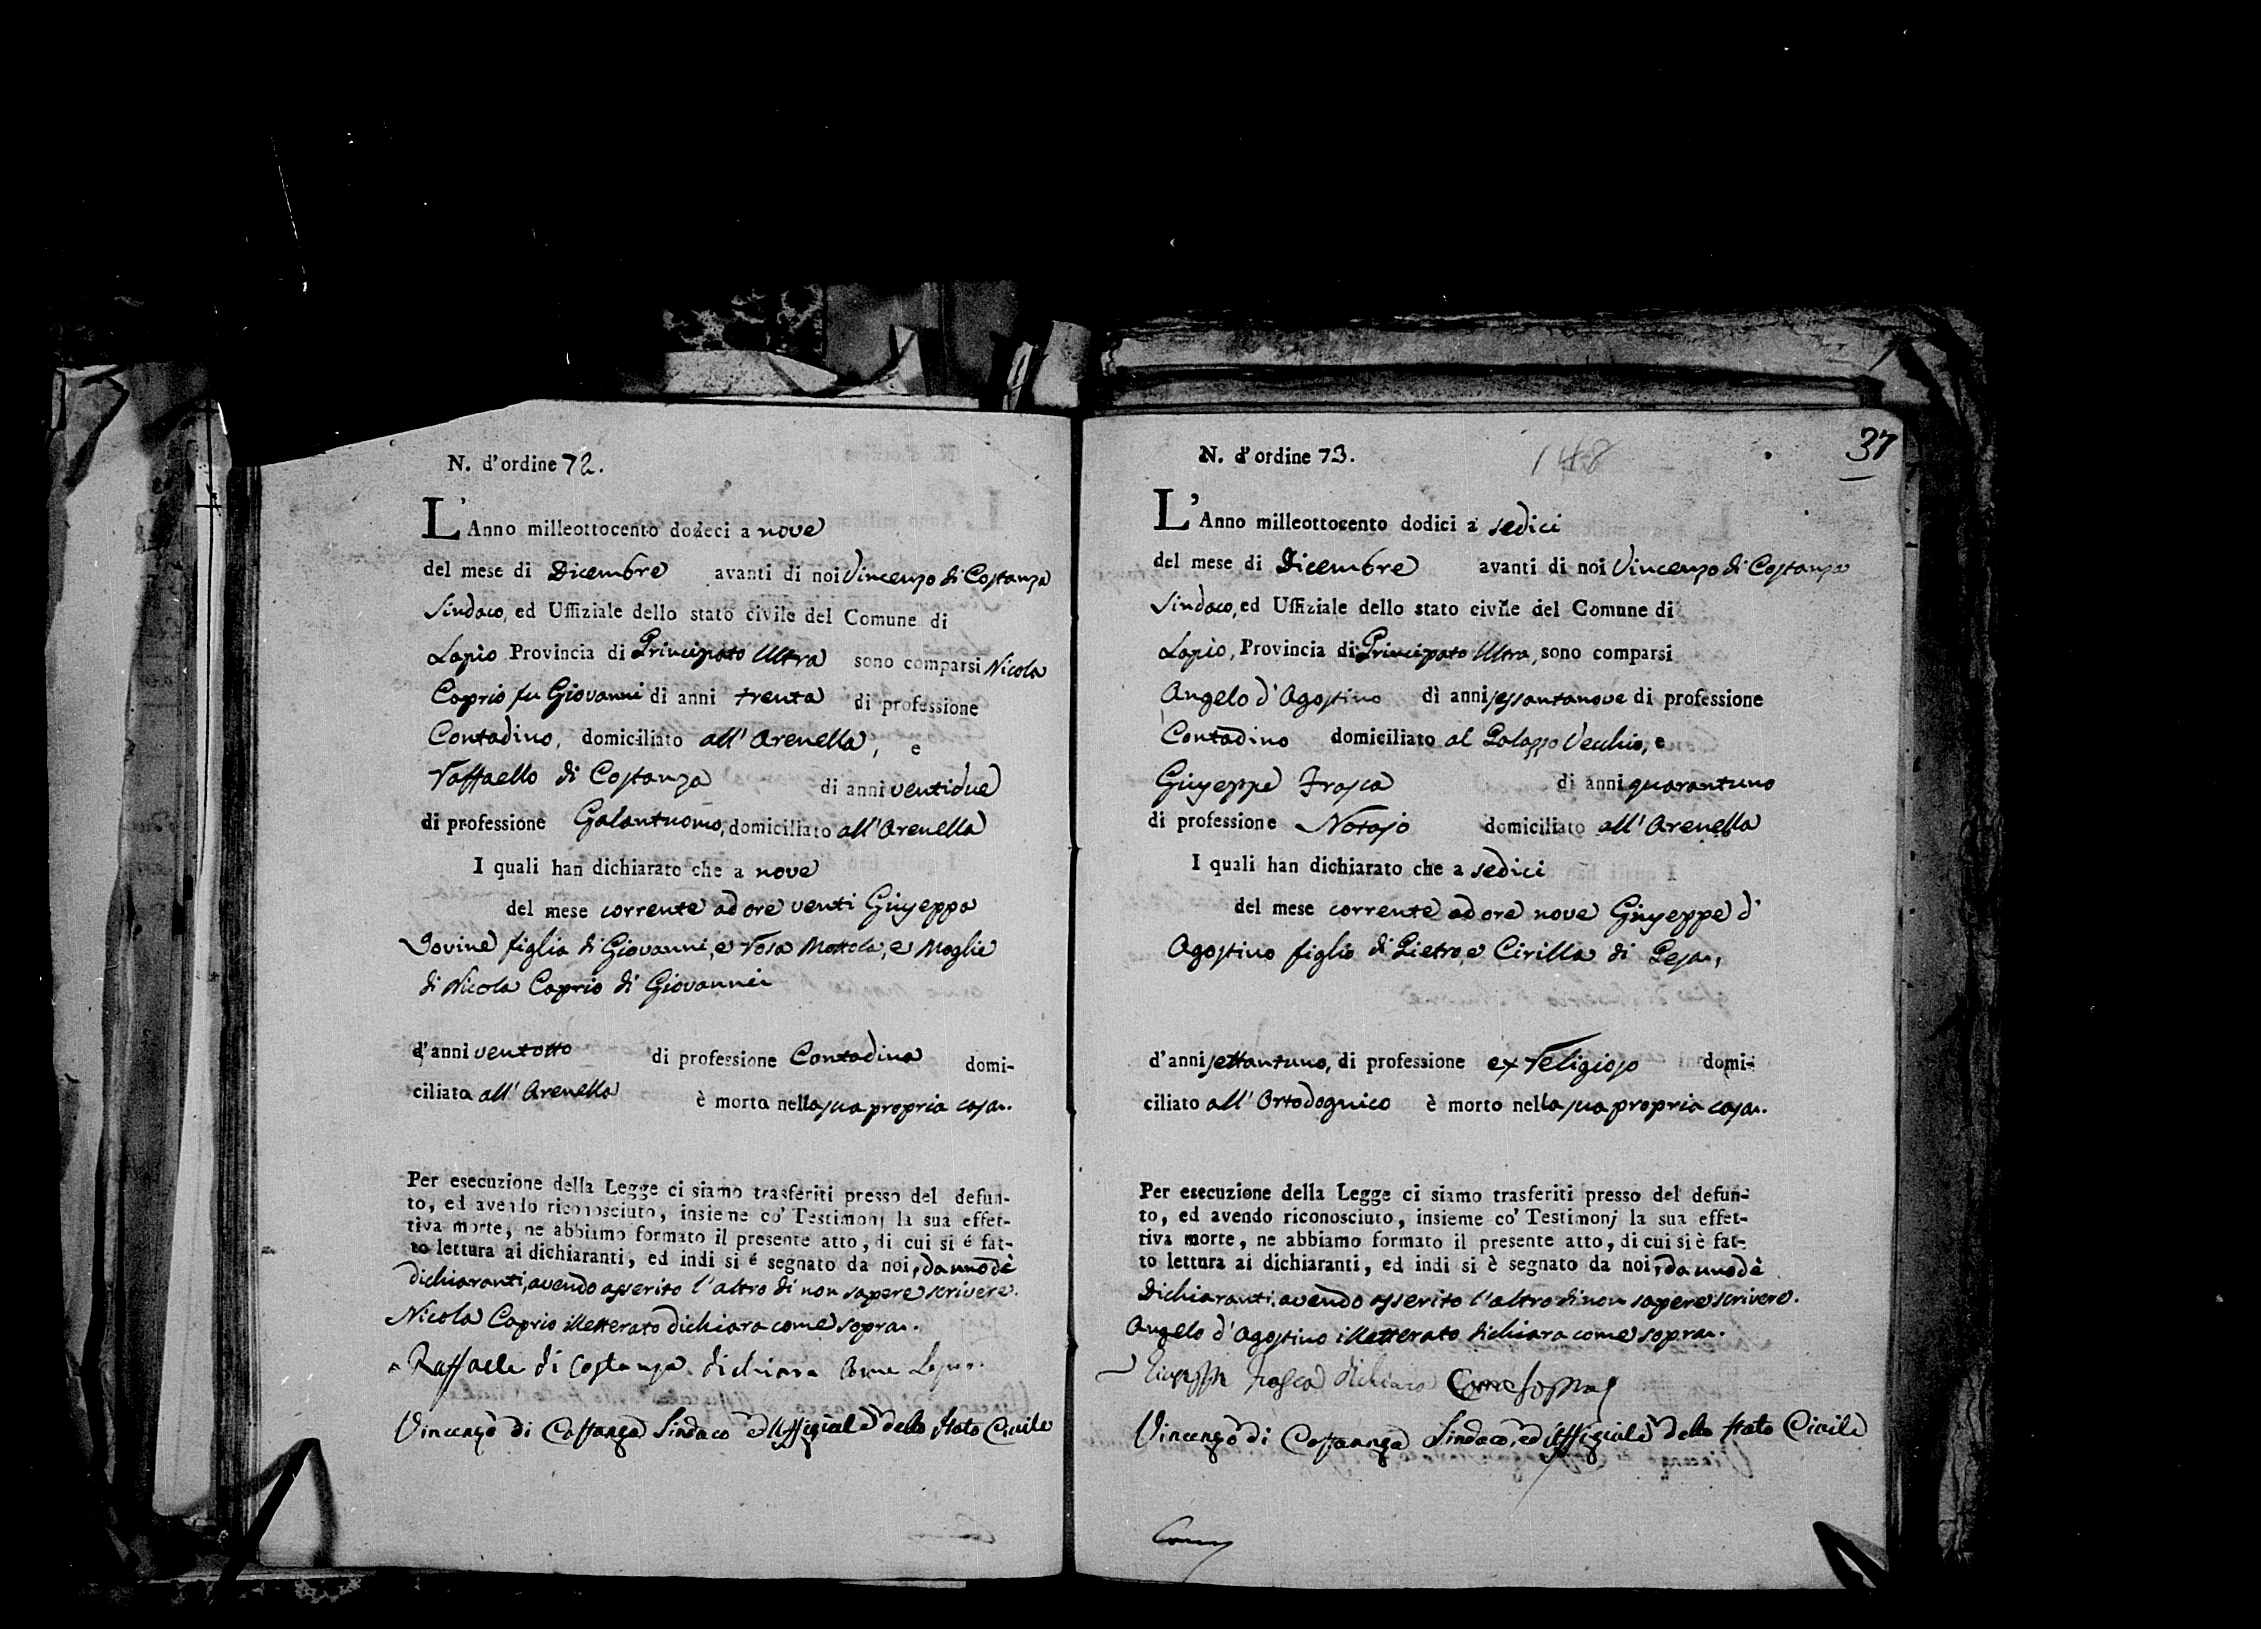 N. d'ordine 72.
L'Anno milleottocento dodeci a nove
del mese di Dicembre avanti di noi Vincenzo di Costanza
Sindaco, ed Uffiziale dello stato civile del Comune di
Lapio Provincia di Principato Ultra sono comparsi Nicola
Caprio fu Giovanni di anni trenta di professione
Contadino, domiciliato all'Arenella, e
Raffaello di Costanza di anni ventidue
di professione Galantuomo, domiciliato all'Arenella
I quali han dichiarato che a nove
del mese corrente ad ore venti Giuseppa
Iovine figlia di Giovanni, e Rosa Mottola, e Moglie
di Nicola Caprio di Giovanni
d'anni ventotto di professione Contadina domi-
ciliata all'Arenella è morta nella sua propria casa.
Per esecuzione della Legge ci siamo trasferiti presso del defun-
to, ed avendo riconosciuto, insieme co' Testimonj la sua effet-
tiva morte, ne abbiamo formato il presente atto, di cui si é fat-
to lettura ai dichiaranti, ed indi si é segnato da noi, da uno dè
dichiaranti, avendo asserito l'altro di non sapere scrivere.
Nicola Caprio illetterato dichiara come sopra.
Raffaele di Costanza dichiara Come Sopra
Vincenzo di Costanza Sindaco ed Uffiziale dello Stato Civile
37
N. d'ordine 73.
148
L'Anno milleottocento dodici a sedici
del mese di Dicembre avanti di noi Vincenzo di Costanza
Sindaco, ed Uffiziale dello stato civile del Comune di
Lapio, Provincia di Principato Ultra, sono comparsi
Angelo d'Agostino di anni sessantanove di professione
Contadino domiciliato al Palazzo Vecchio, e
Giuseppe Frasca di anni quarantuno
di professione Notajo domiciliato all'Arenella
I quali han dichiarato che a sedici
del mese corrente ad ore nove Giuseppe d'
Agostino figlio di Pietro, e Cirilla di Pesa,
d'anni settantuno, di professione ex Religioso domi-
ciliato all'Ortodognico è morto nella sua propria casa.
Per esecuzione della Legge ci siamo trasferiti presso del defun-
to, ed avendo riconosciuto, insieme co' Testimonj la sua effet-
tiva morte, ne abbiamo formato il presente atto, di cui si è fat-
to lettura ai dichiaranti, ed indi si è segnato da noi, da uno dè
dichiaranti, avendo asserito l'altro di non sapere scrivere.
Angelo d'Agostino illetterato dichiara come sopra.
Giuseppe Frasca dichiaro Come sopra
Vincenzo di Costanza Sindaco, ed Uffiziale dello Stato Civile